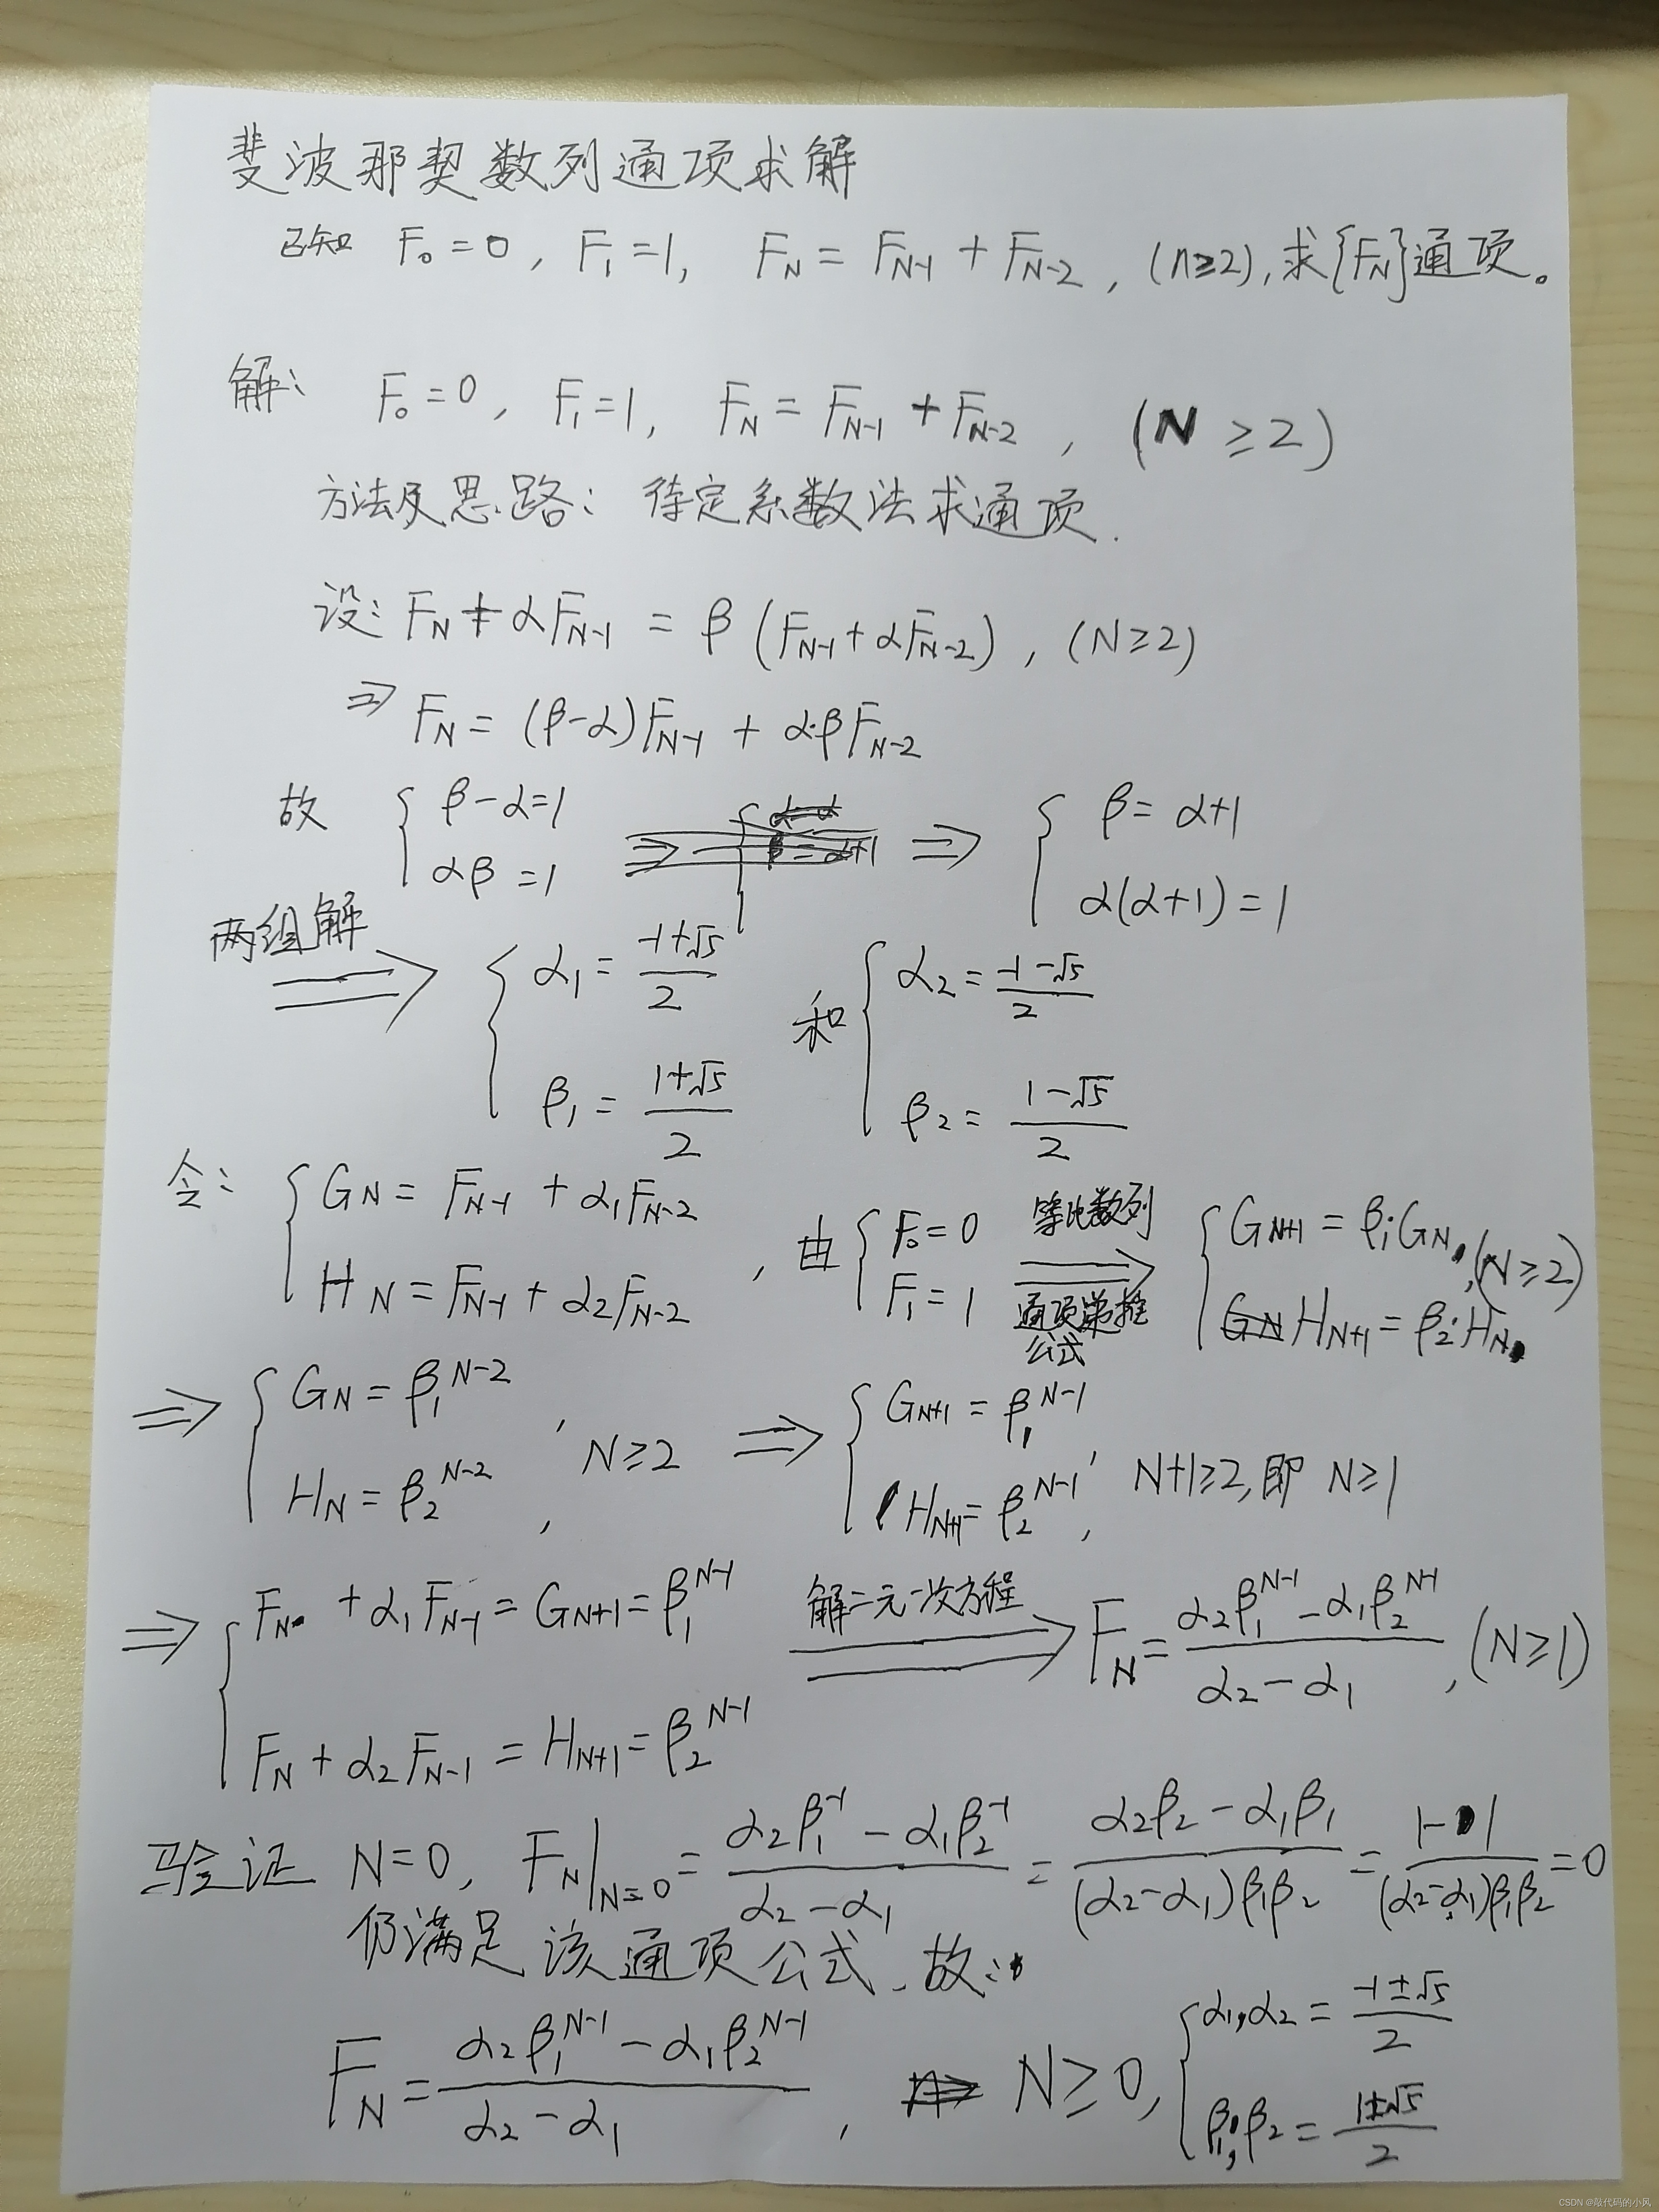 斐波那契数列通项求解
已知 F₀=0, F₁=1, F_N = F_{N-1} + F_{N-2}, (n≥2), 求{F_N}通项。
解: F₀=0, F₁=1, F_N = F_{N-1} + F_{N-2}, (N≥2)
方法及思路: 待定系数法求通项.
设: F_N + αF_{N-1} = β(F_{N-1} + αF_{N-2}), (N≥2)
⇒ F_N = (β-α)F_{N-1} + α·βF_{N-2}
故 { β-α=1 , αβ=1 ⇒ { β=α+1 , α(α+1)=1
两组解 ⇒ { α₁ = (-1+√5)/2 , β₁ = (1+√5)/2 和 { α₂ = (-1-√5)/2 , β₂ = (1-√5)/2
令: { G_N = F_{N-1} + α₁F_{N-2} , H_N = F_{N-1} + α₂F_{N-2} , 由 { F₀=0 , F₁=1 等比数列 ⇒ 通项递推公式 { G_{N+1} = β₁·G_N , H_{N+1} = β₂·H_N , (N≥2)
⇒ { G_N = β₁^{N-2} , H_N = β₂^{N-2} , N≥2 ⇒ { G_{N+1} = β₁^{N-1} , H_{N+1} = β₂^{N-1} , N+1≥2, 即 N≥1
⇒ { F_N + α₁F_{N-1} = G_{N+1} = β₁^{N-1} , F_N + α₂F_{N-1} = H_{N+1} = β₂^{N-1} 解二元一次方程 ⇒ F_N = (α₂β₁^{N-1} - α₁β₂^{N-1})/(α₂-α₁), (N≥1)
验证 N=0, F_N|_{N=0} = (α₂β₁^{-1} - α₁β₂^{-1})/(α₂-α₁) = (α₂β₂ - α₁β₁)/((α₂-α₁)β₁β₂) = (1-1)/((α₂-α₁)β₁β₂) = 0
仍满足该通项公式. 故:
F_N = (α₂β₁^{N-1} - α₁β₂^{N-1})/(α₂-α₁) , N≥0, { α₁,α₂ = (-1±√5)/2 , β₁,β₂ = (1±√5)/2
CSDN @敲代码的小风